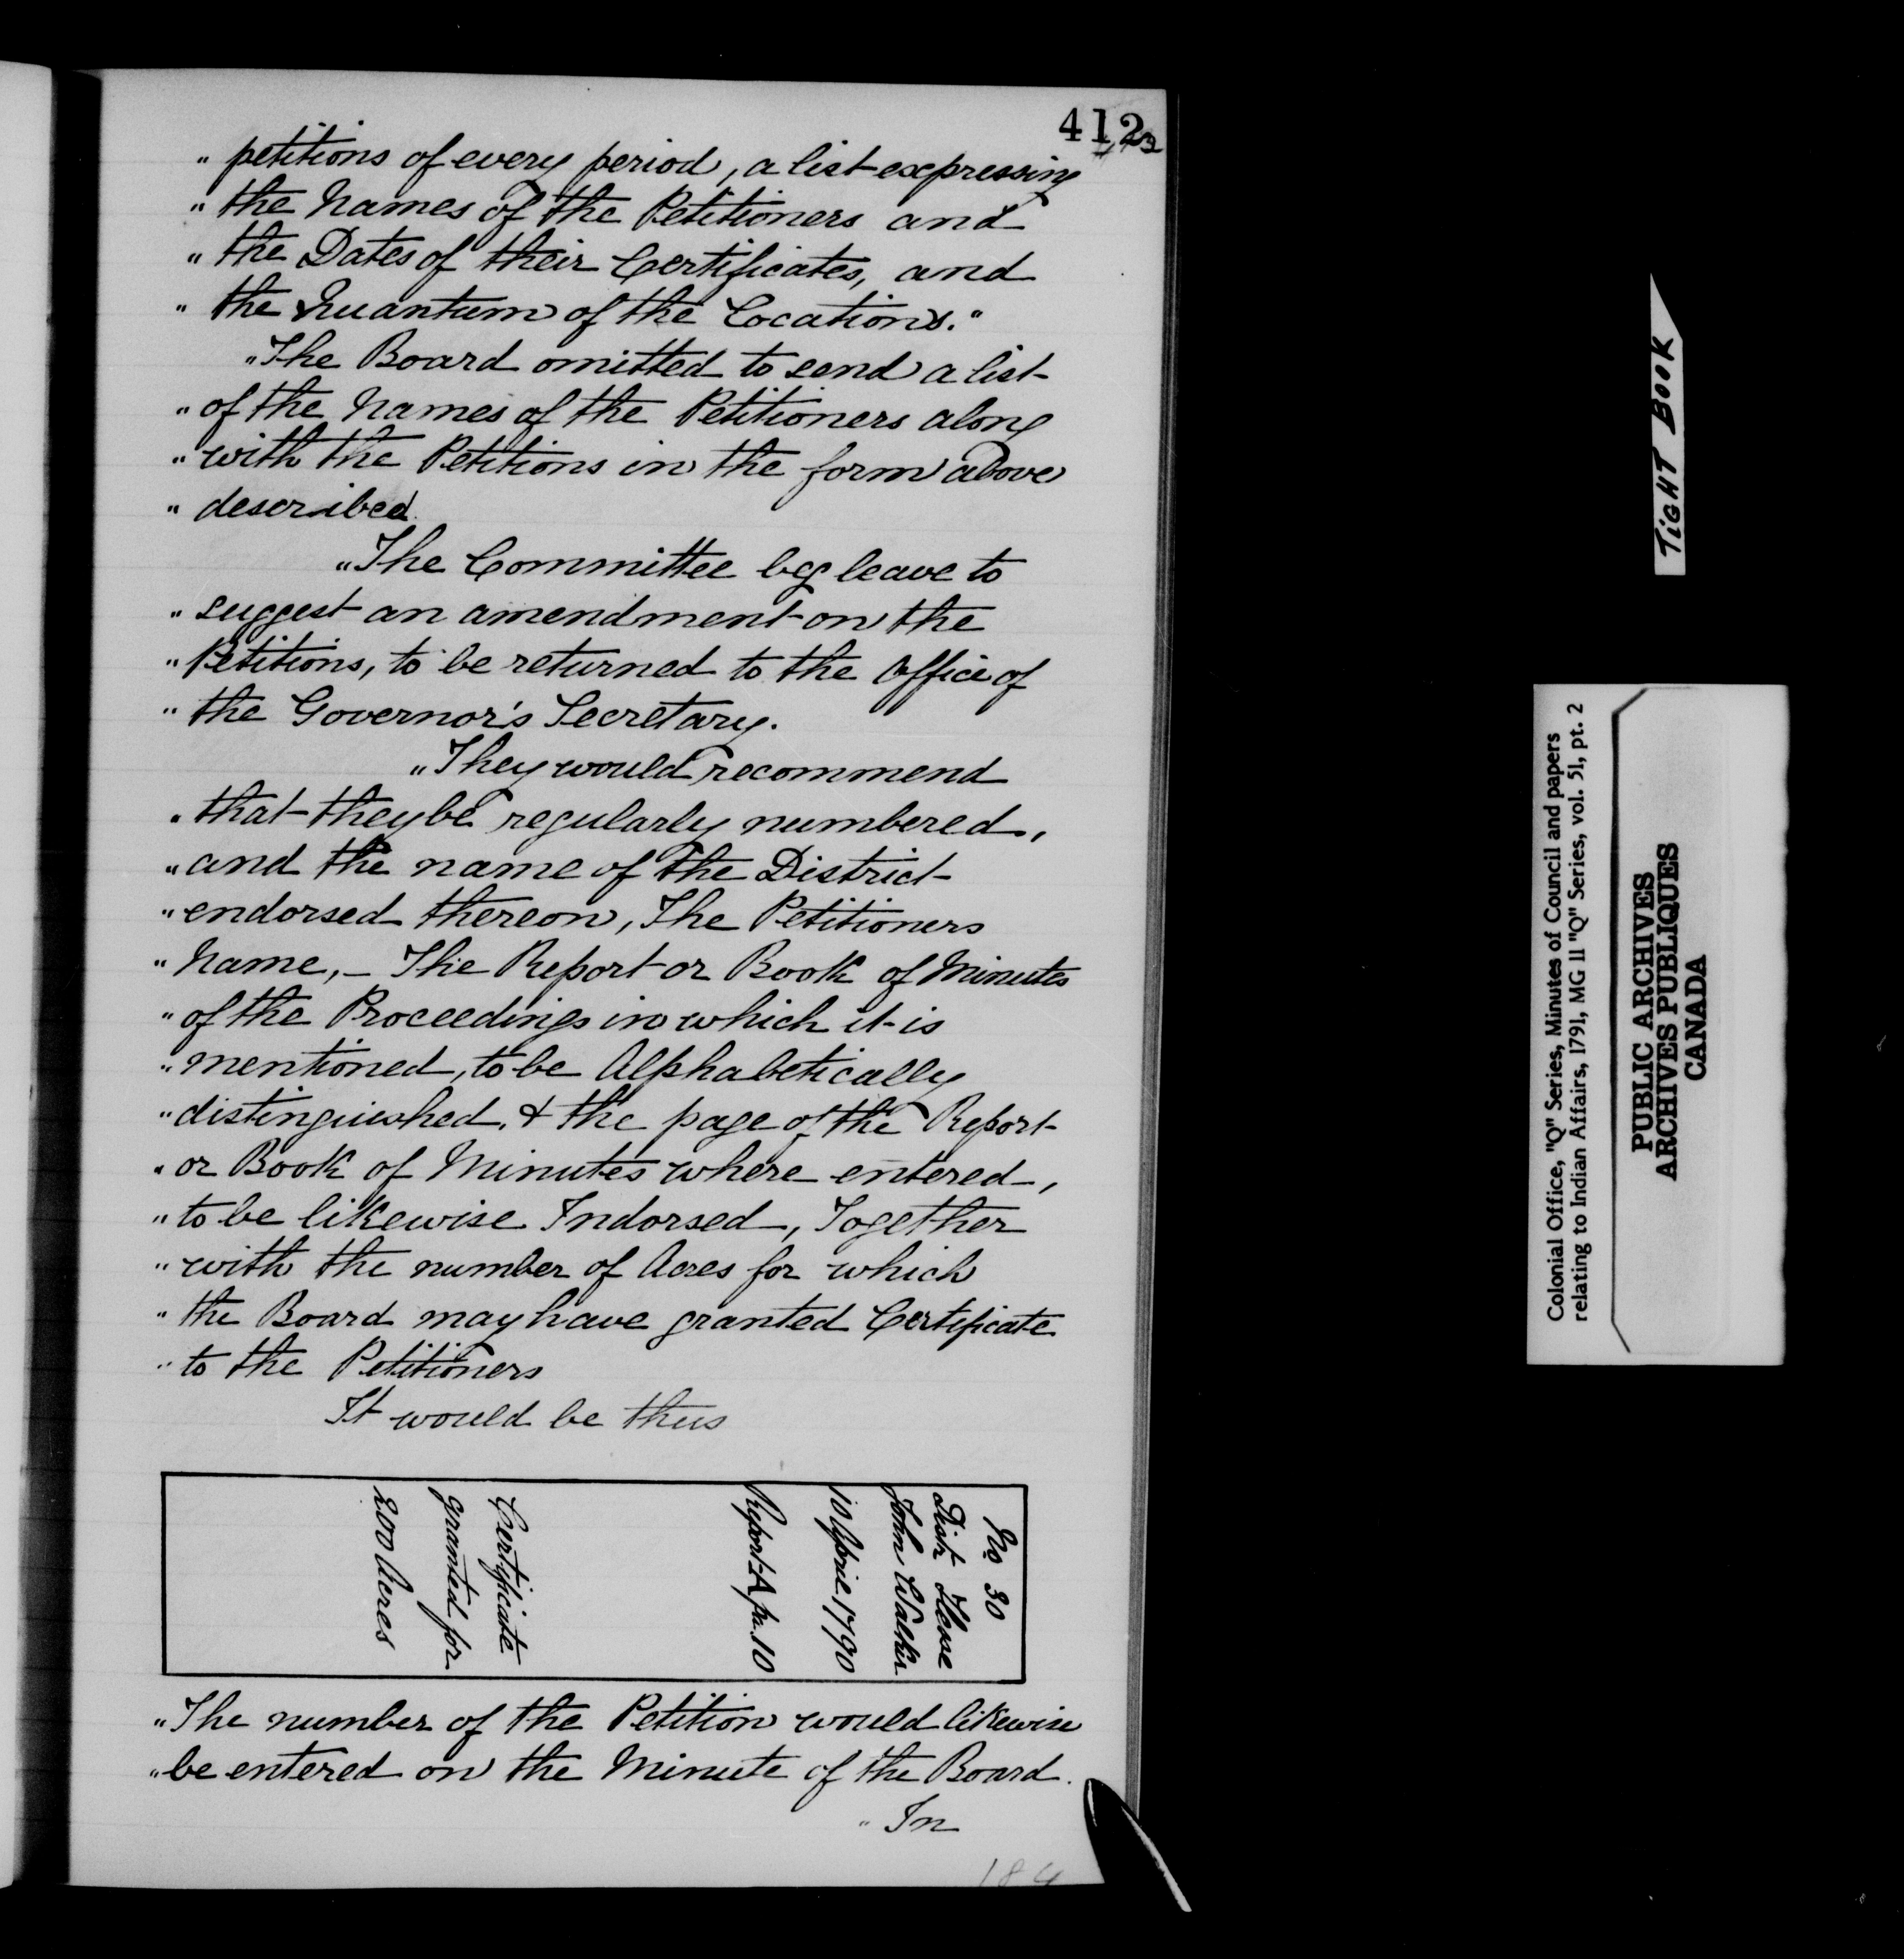 412
" petitions of every period, a list expressing
" the Names of the Petitioners and
" the Dates of their Certificates, and
" the Quantum of the Locations."
"The Board omitted to send a list
" of the Names of the Petitioners along
" with the Petitions in the form above
" described.
"The Committee beg leave to
" suggest an amendment on the
" Petitions, to be returned to the Office of
" the Governor's Secretary.
"They would recommend
" that they be regularly numbered,
" and the name of the District
" endorsed thereon, The Petitioners
" Name, - The Report or Book of Minutes
" of the Proceedings in which it is
" mentioned, to be Alphabetically
" distinguished, & the page of the Report
" or Book of Minutes where entered,
" to be likewise Indorsed, Together
" with the number of Acres for which
" the Board may have granted Certificate
" to the Petitioners
It would be thus
No 30
Distr Hesse
John Walker
10 April 1790
Report A pa. 10
Certificate
granted for
200 Acres
"The number of the Petition would likewise
" be entered on the Minute of the Board.
" In
184
TIGHT BOOK
Colonial Office, "Q" Series, Minutes of Council and papers
relating to Indian Affairs, 1791, MG 11 "Q" Series, vol. 51, pt. 2
PUBLIC ARCHIVES
ARCHIVES PUBLIQUES
CANADA